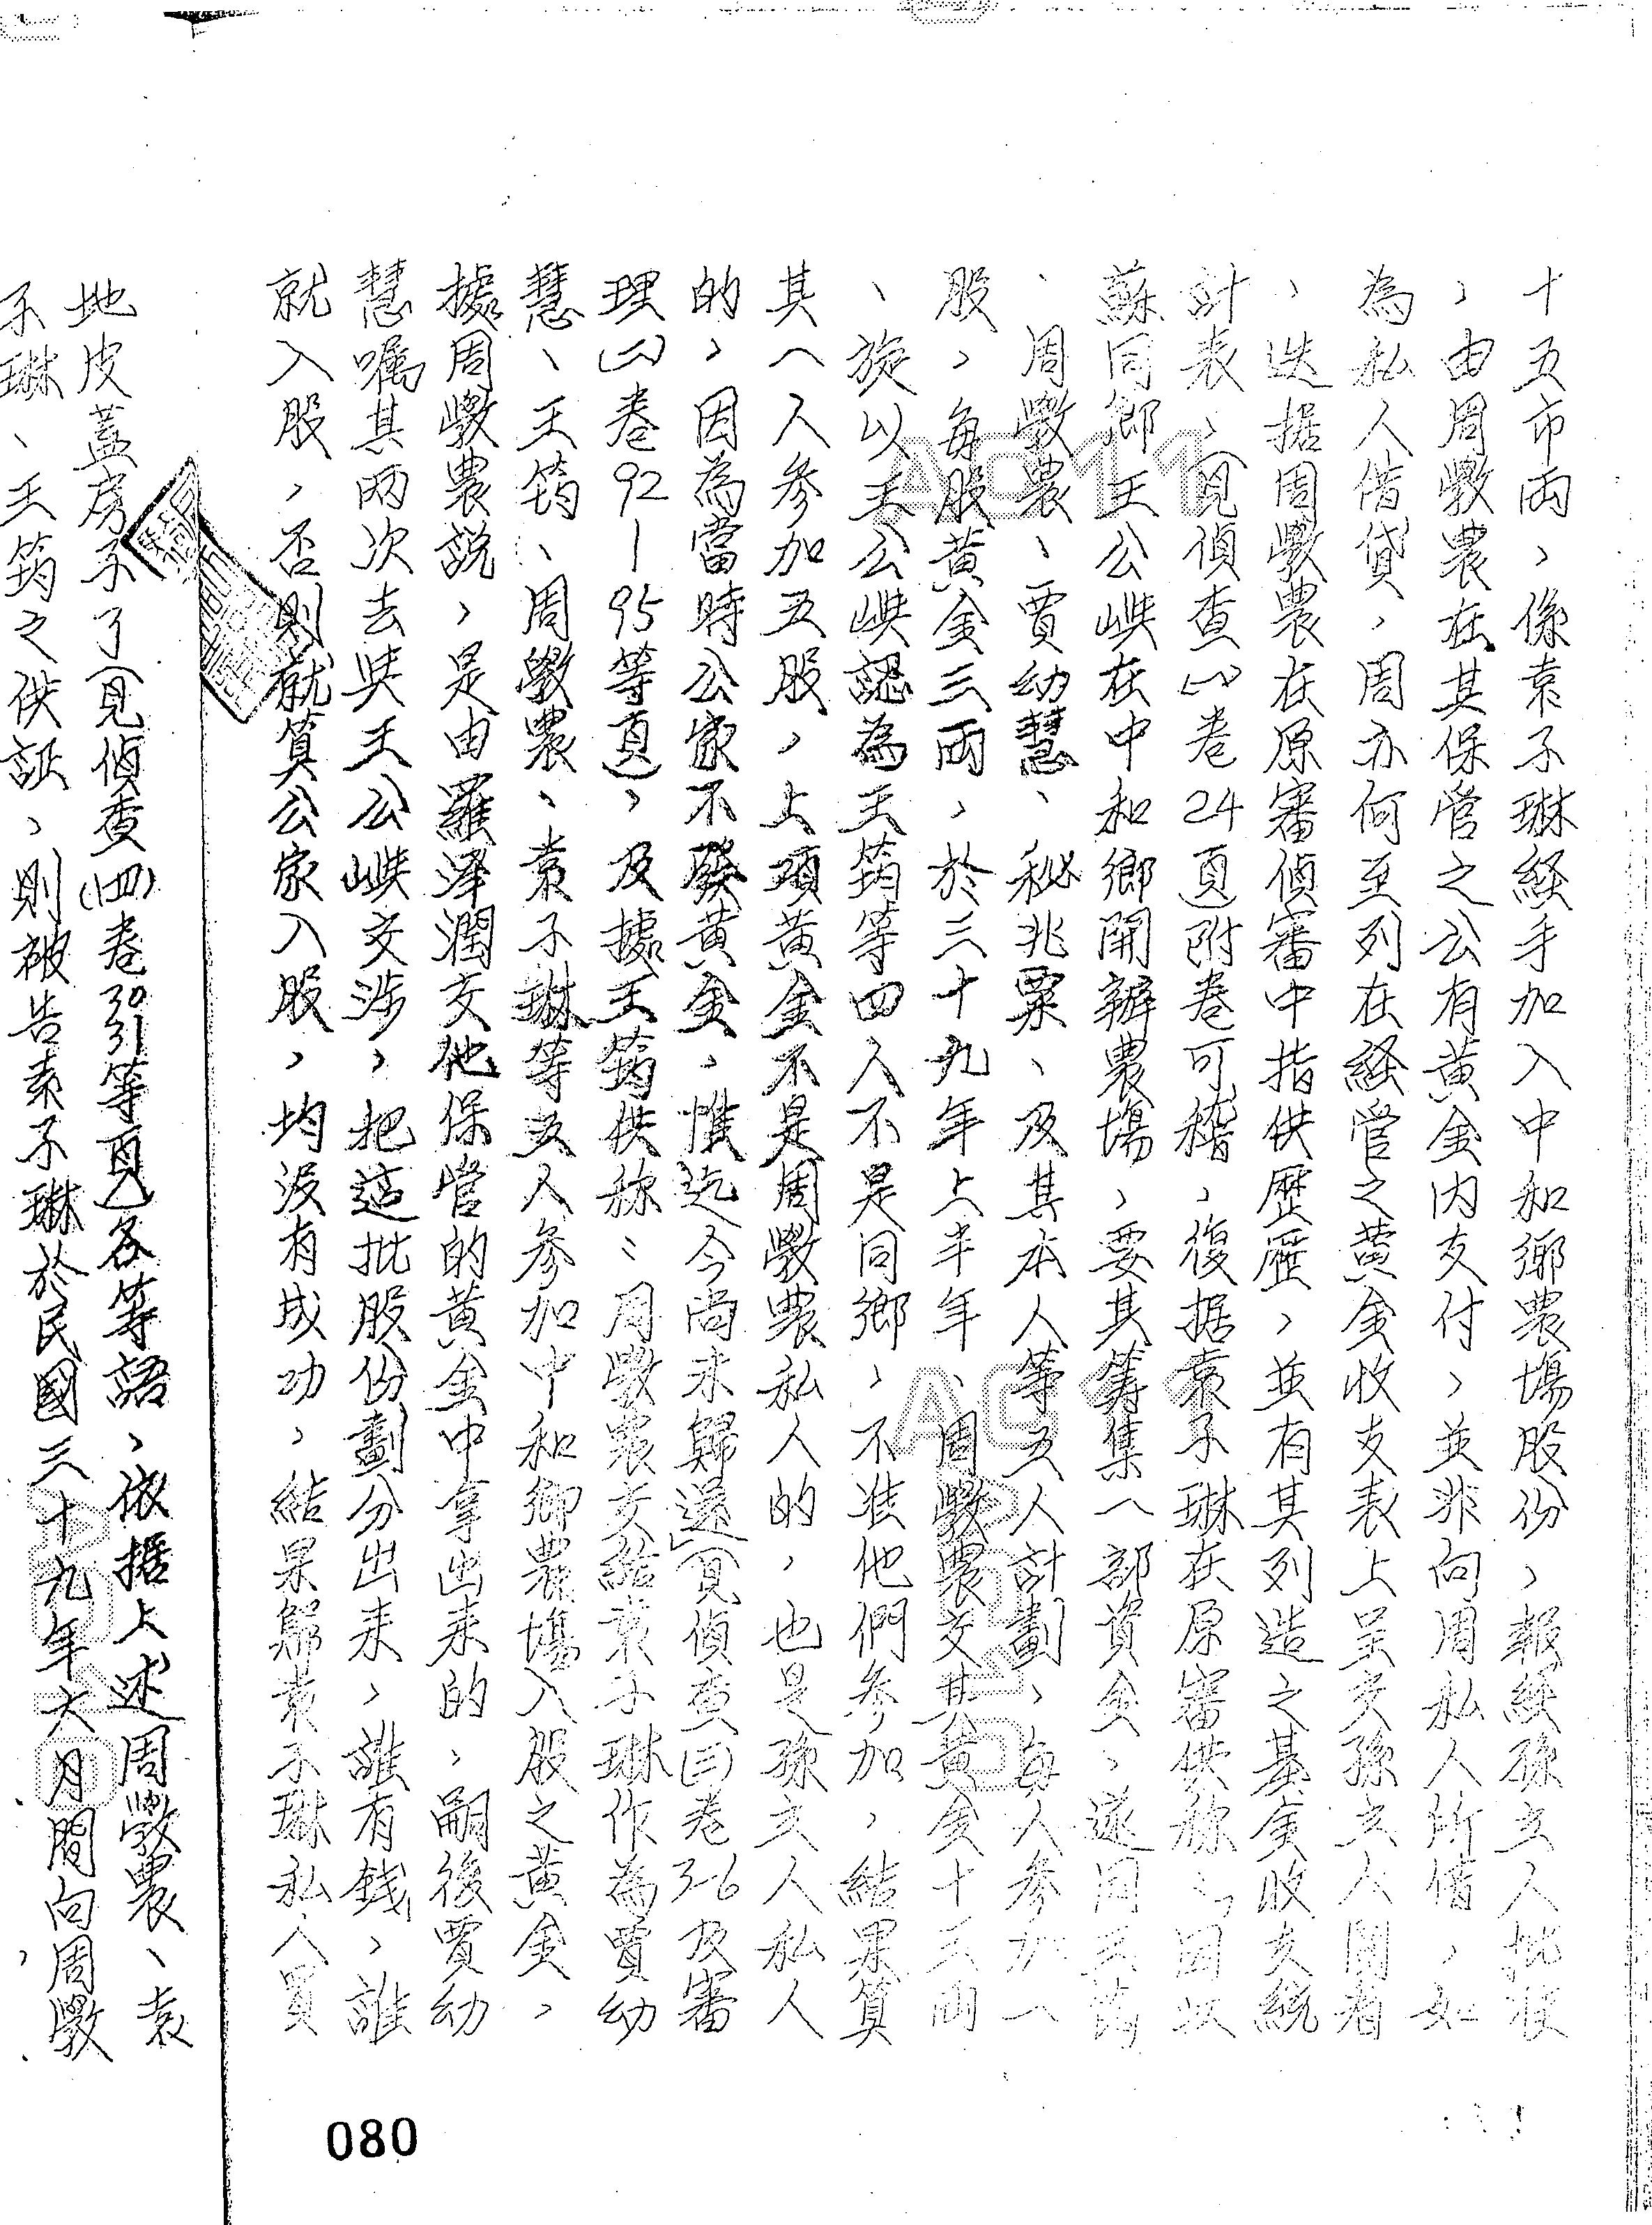 十五市兩，係袁子琳經手加入中和鄉農場股份，報經孫立人批准
，由周斅農在其保管之公有黃金內支付，並非向周私人所借，如
為私人借貸，周亦何至列在經管之黃金收支表上呈交孫立人閱看
，迭据周斅農在原審偵審中指供歷歷，並有其列造之基金收支統
計表，（見偵查(一)卷24頁）附卷可稽，復据袁子琳在原審供称：「因
蘇同鄉王公嶼在中和鄉開辦農場，要其籌集一部資金，遂同王筠
、周斅農、賈幼慧、秘兆粟、及其本人等五人計劃，每人參加一
股，每股黃金三兩，於三十九年上半年、周斅農交其黃金十三兩
、旋以王公嶼認為王筠等四人不是同鄉，不准他們參加，結果算
其一人參加五股，上項黃金不是周斅農私人的，也是孫立人私人
的，因為當時公家不發黃金，惟迄今尚未歸還」（見偵查(三)卷36及審
理(二)卷92—95等頁），及據王筠供称：周斅農交給袁子琳作為賈幼
慧、王筠、周斅農、袁子琳等五人參加中和鄉農場入股之黃金，
據周斅農說，是由羅澤潤交他保管的黃金中拿出來的，嗣後賈幼
慧囑其兩次去與王公嶼交涉，把這批股份劃分出來，誰有錢，誰
就入股，否則就算公家入股，均沒有成功，結果歸袁子琳私人買
地皮蓋房子了（見偵查(四)卷30 31等頁）各等語，依据上述周斅農、袁
子琳、王筠之供証，則被告袁子琳於民國三十九年六月間向周斅
080